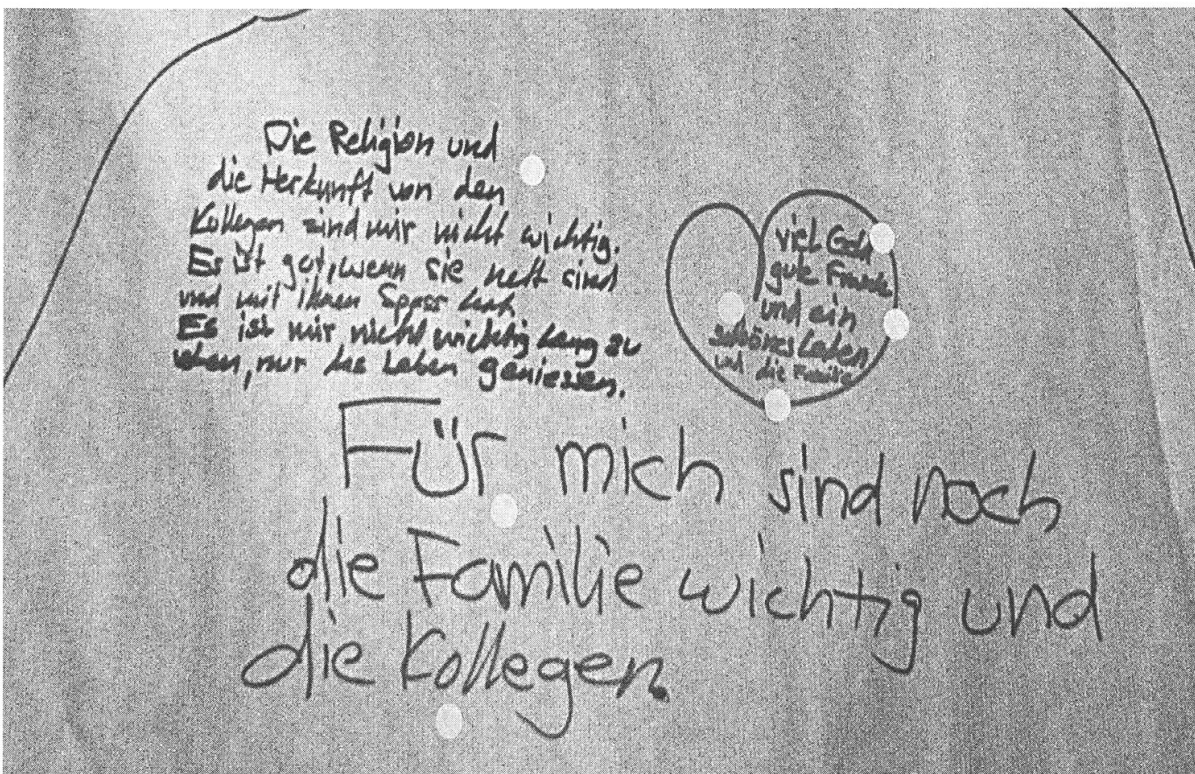 Die Religion und
die Herkunft von den
Kollegen sind mir nicht wichtig.
Es ist gut, wenn sie nett sind
und mit ihnen Spass
Es ist mir nicht wichtig lang zu
leben, nur das Leben geniessen.
viel Geld
gute Freunde
und ein
schönes Leben
und die Familie
Für mich sind noch
die Familie wichtig und
die Kollegen.